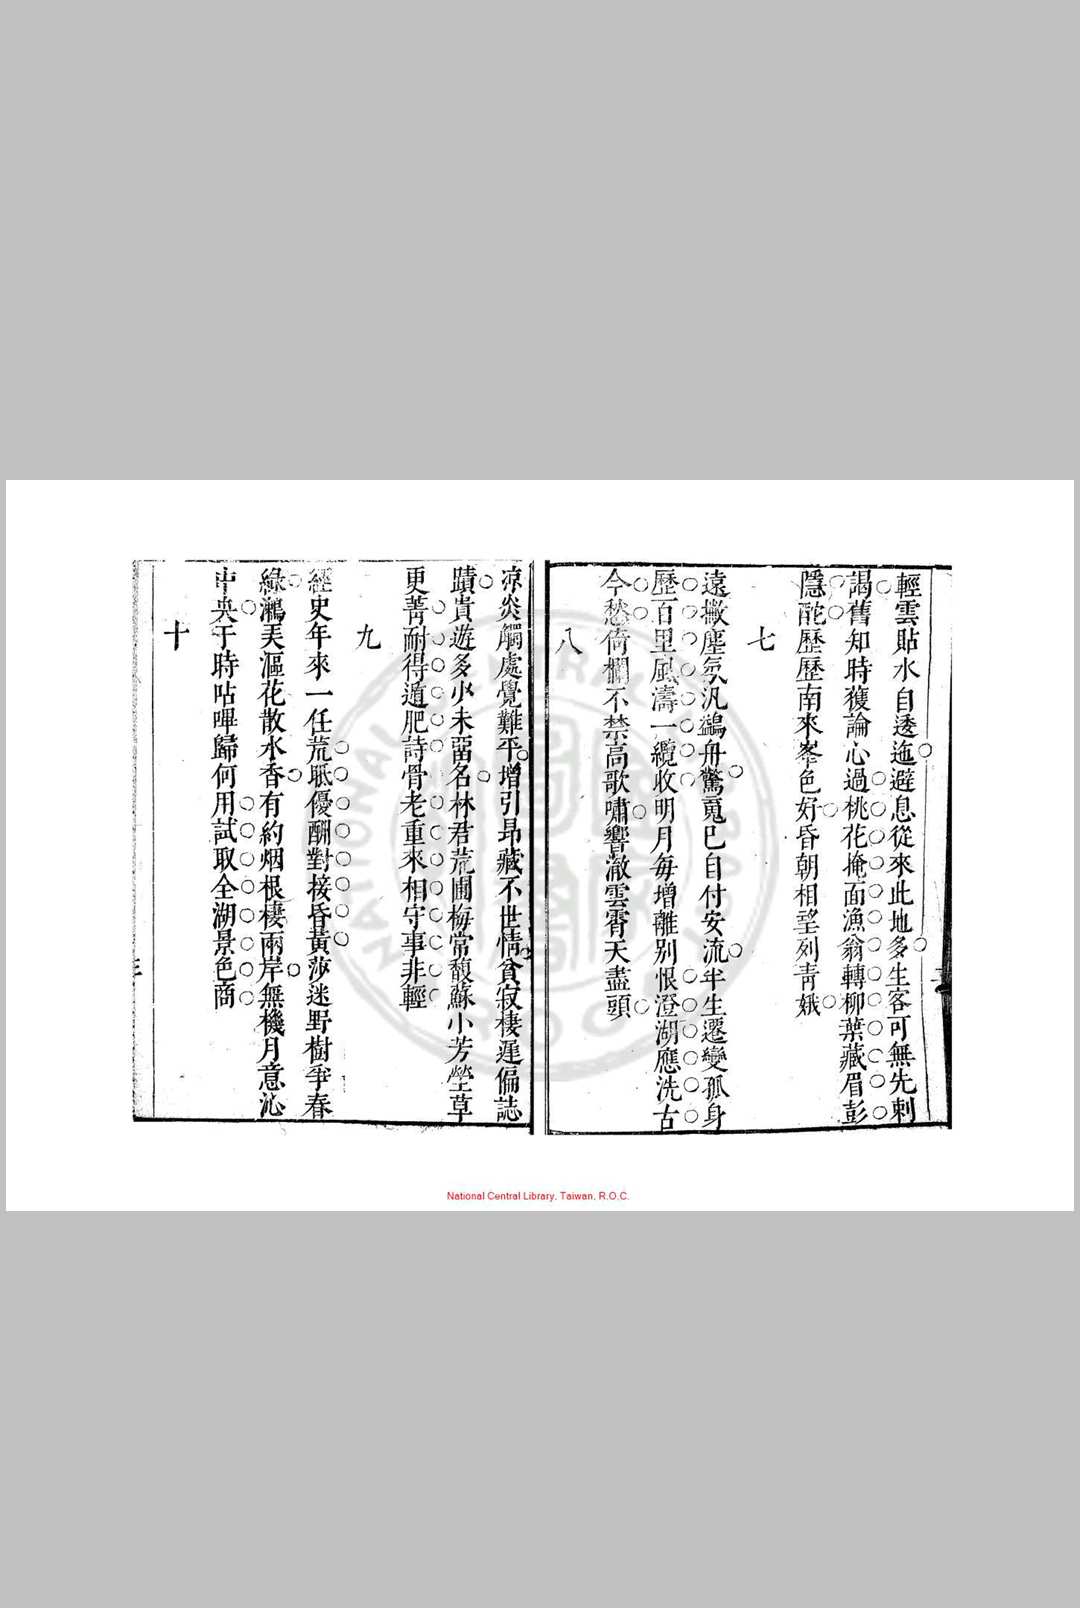 輕雲貼水自透迤避息從來此地多生客可無先刺
謁舊知時獲論心過桃花掩面漁翁轉柳葉藏眉彭
隱酡歷歷南來峯色好昏朝相望列靑娥
七
遠撇塵氛汎鷁舟驚寃已自付安流半生遷變孤身
歷百里風濤一纜收明月每增離别恨澄湖應洗古
今愁倚欄不禁高歌嘯響澈雲霄天盡頭
八
凉炎觸處覺難平增引昂藏不世情貧寂棲遲偏誌
蹟貴遊多少未畱名林君荒圃梅常馥蘇小芳塋草
更菁耐得遁肥詩骨老重來相守事非輕
九
經史年來一任荒䀡優酬對接昏黃莎迷野樹爭春
綠鸂美漚花散水香有約烟根棲兩岸無機月意沁
中央于時呫嗶歸何用試取全湖景色商
十
National Central Library, Taiwan, R.O.C.